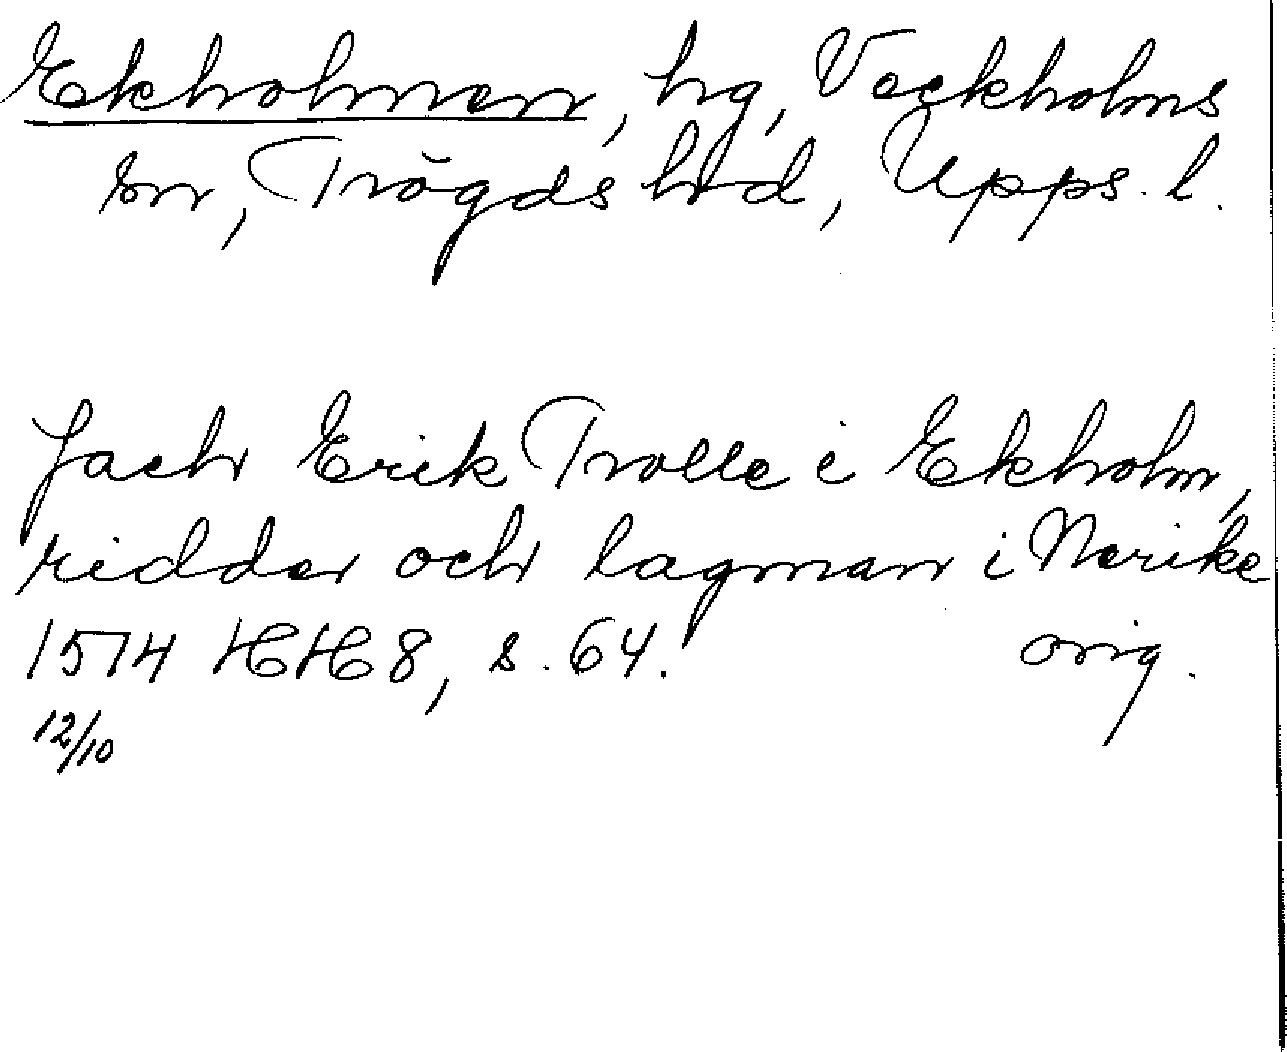 Ekholmen, hg, Veckholms
sn, Trögds hd, Upps. l.
Jach Erik Trolle i Ekholm,
ridder och lagman i Nerike
1514 HH 8, s. 64. orig.
12/10